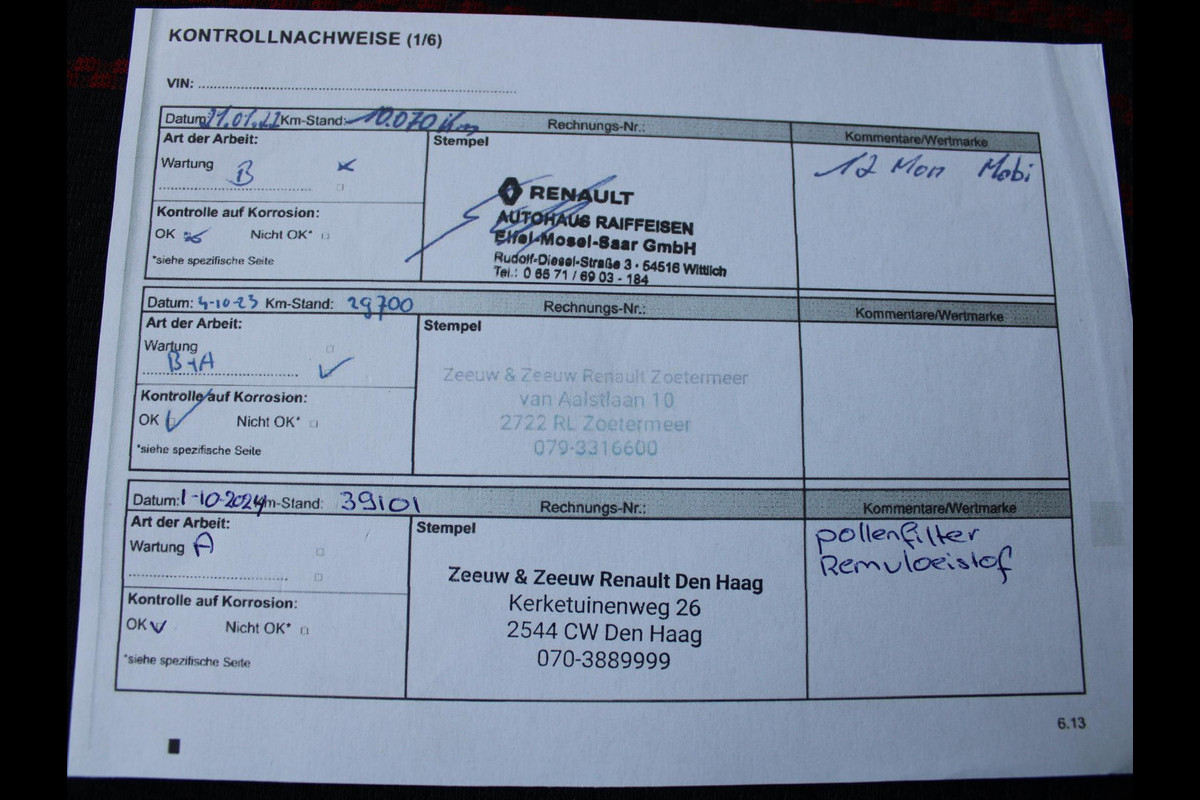 KONTROLLNACHWEISE (1/6)
VIN: ........................................
Datum: 21.01.22 Km-Stand: 10.070 Km Rechnungs-Nr.: Kommentare/Wertmarke
Art der Arbeit: Stempel
Wartung B
12 Mon Mobi
RENAULT
AUTOHAUS RAIFFEISEN
Eifel-Mosel-Saar GmbH
Rudolf-Diesel-Straße 3 · 54516 Wittlich
Tel.: 0 65 71 / 69 03 - 184
Kontrolle auf Korrosion:
OK Nicht OK*
*siehe spezifische Seite
Datum: 4-10-23 Km-Stand: 29700 Rechnungs-Nr.: Kommentare/Wertmarke
Art der Arbeit: Stempel
Wartung
B+A
Zeeuw & Zeeuw Renault Zoetermeer
van Aalstlaan 10
2722 RL Zoetermeer
079-3316600
Kontrolle auf Korrosion:
OK Nicht OK*
*siehe spezifische Seite
Datum: 1-10-2024 Km-Stand: 39101 Rechnungs-Nr.: Kommentare/Wertmarke
Art der Arbeit: Stempel
Wartung A
pollenfilter
Remvloeistof
Zeeuw & Zeeuw Renault Den Haag
Kerketuinenweg 26
2544 CW Den Haag
070-3889999
Kontrolle auf Korrosion:
OK Nicht OK*
*siehe spezifische Seite
6.13